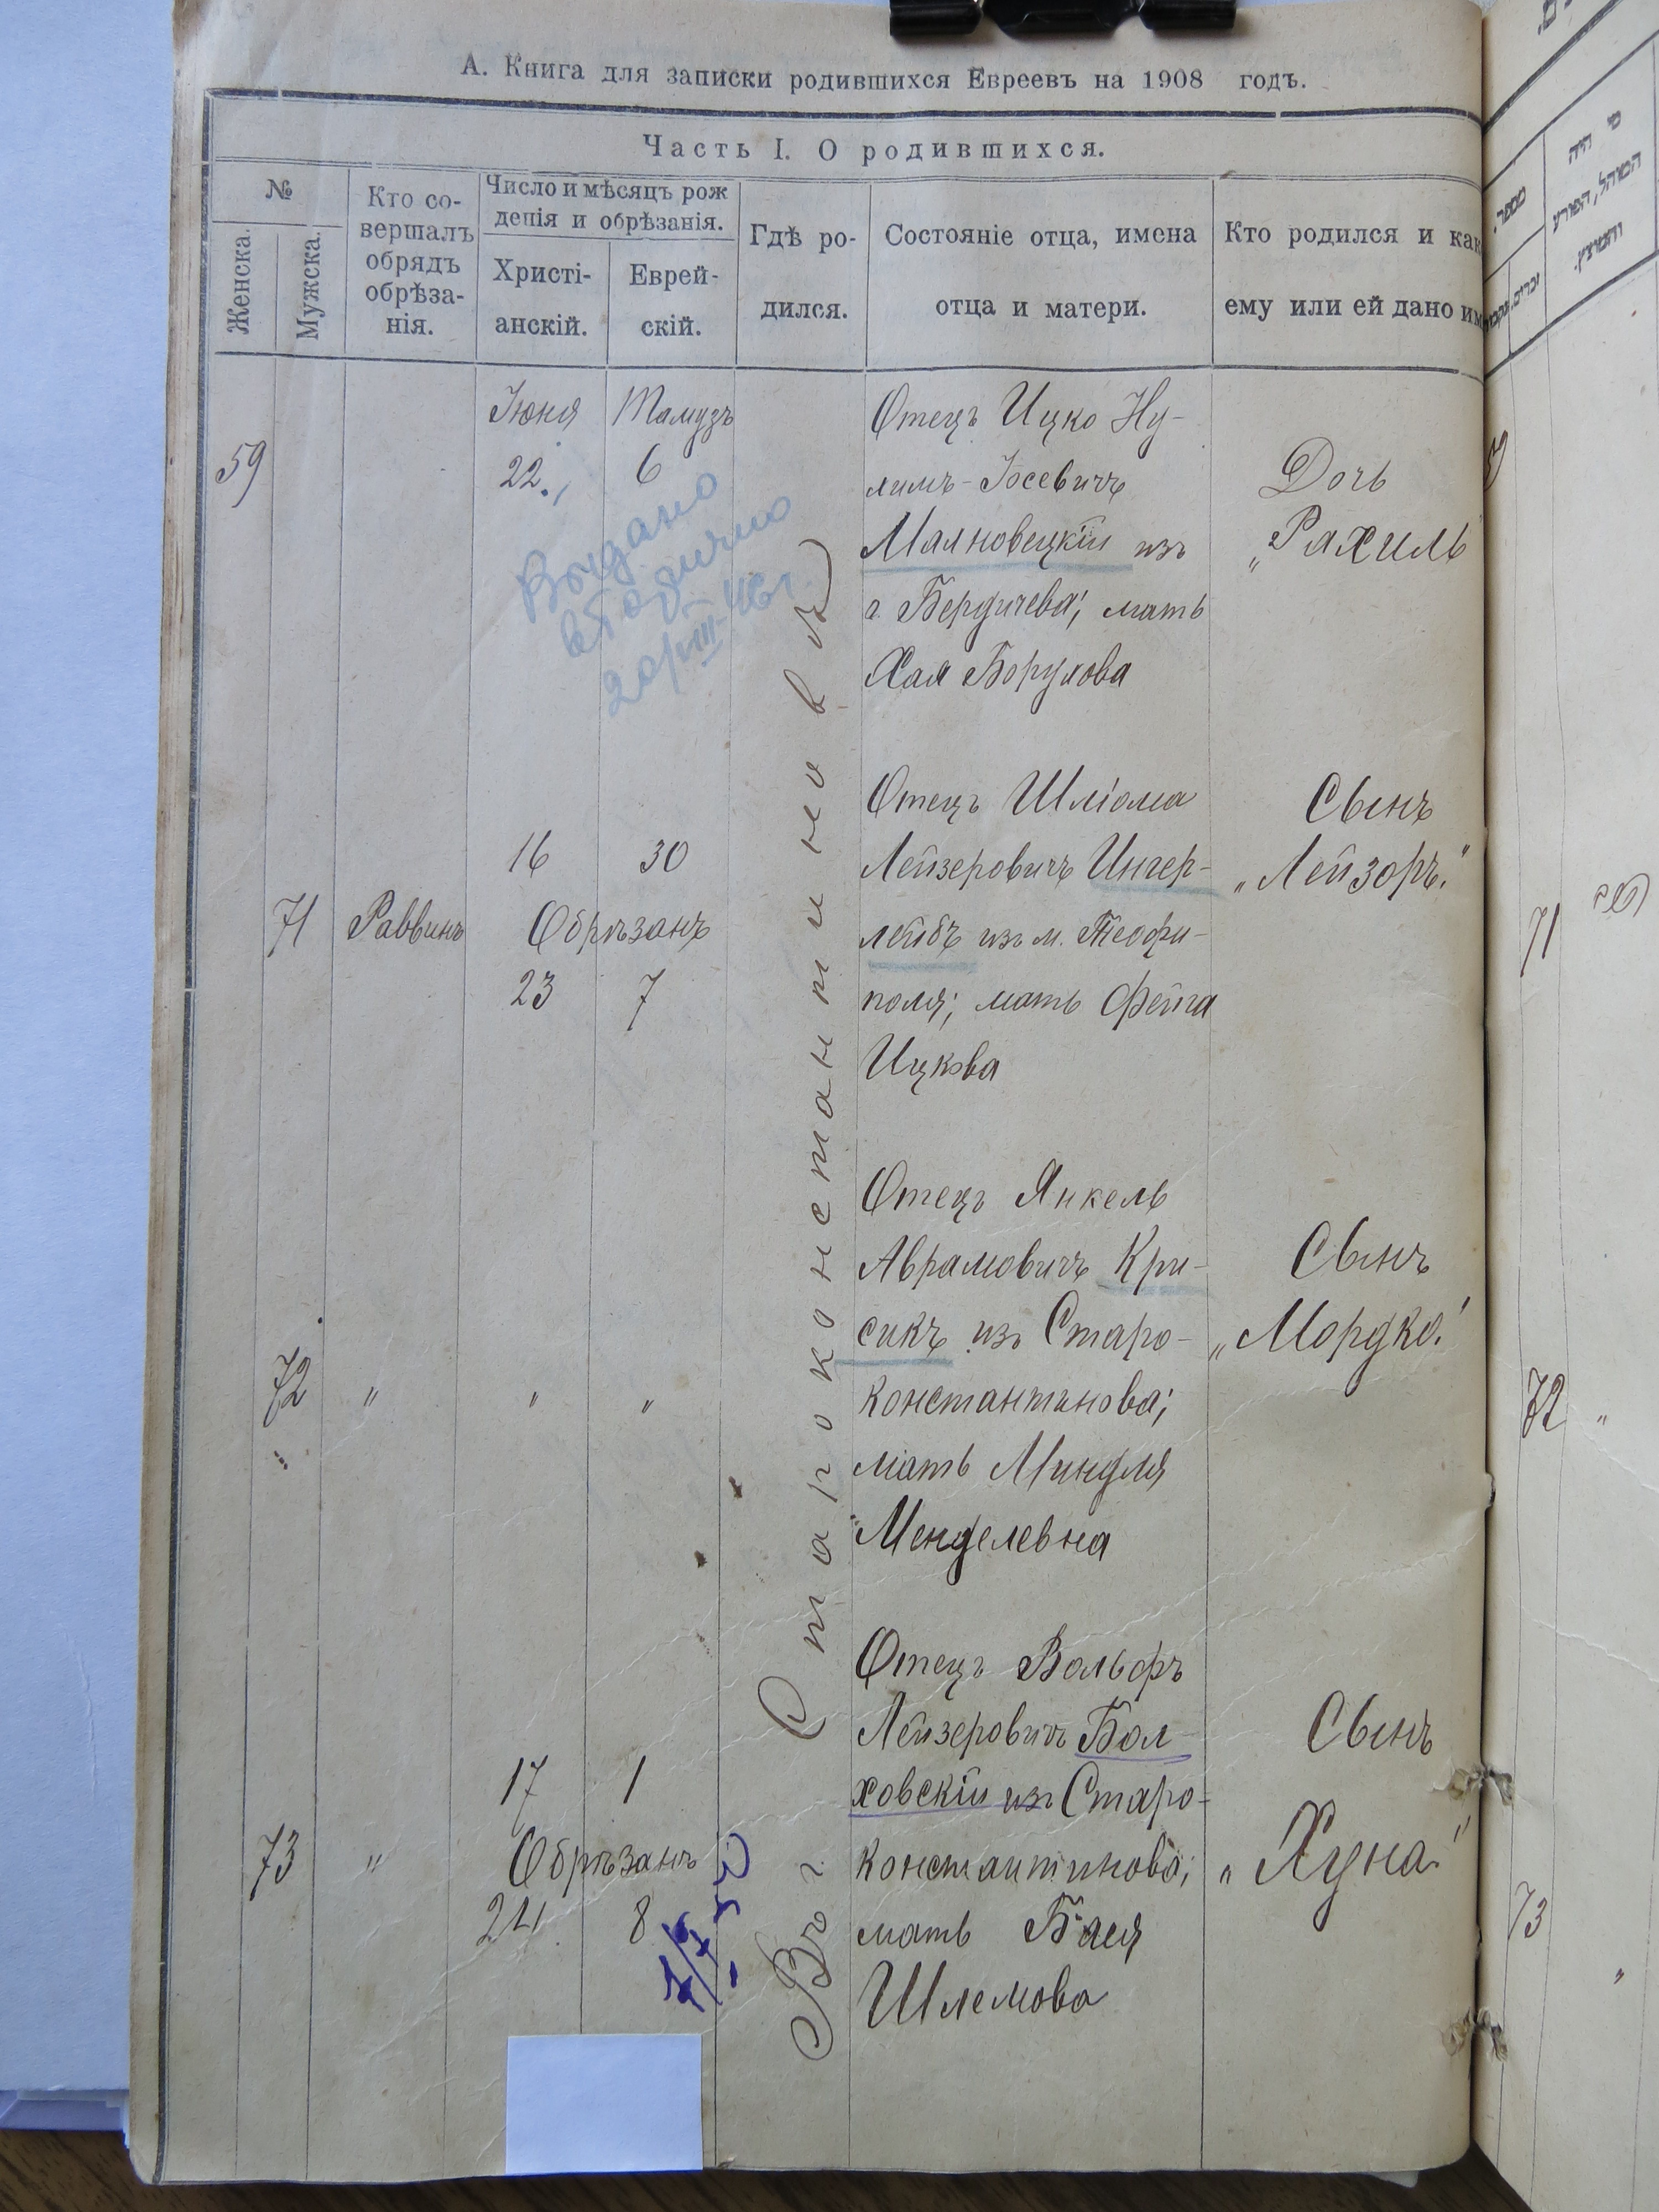 А. Книга для записки родившихся Евреевъ на 1908 годъ.
Часть I. О родившихся.
№
Женска.
Мужска.
Кто со-
вершалъ
обрядъ
обрѣза-
нія.
Число и мѣсяцъ рож
денія и обрѣзанія.
Христі-
анскій.
Еврей-
скій.
Гдѣ ро-
дился.
Состояніе отца, имена
отца и матери.
Кто родился и как
ему или ей дано им
59
Іюня Тамузъ
22. 6
Отецъ Ицко Ну-
лимъ-Іосевичъ
Маляновецкій изъ
г. Бердичева; мать
Хая Борухова
Дочь
„Рахиль
Выдано
20/VIII-46г
71
Раввинъ
16 30
Обрѣзанъ
23 7
Отецъ Шліома
Лейзеровичъ Ингер-
лейбъ изъ м. Теофи-
поля; мать Фейга
Ицкова
Сынъ
„Лейзоръ."
72
" " "
Отецъ Янкель
Аврамовичъ Кри-
сикъ изъ Старо-
константинова;
мать Миндля
Менделевна
Сынъ
„Мордко."
73
"
17 1
Обрѣзанъ
24 8
Отецъ Вольфъ
Лейзеровичъ Бол-
ховскій изъ Старо-
константинова;
мать Бася
Шлемова
Сынъ
„Хуна"
Въ г. Староконстантиновѣ
מספר
זכרים
מי היה
המוהל, הפורע
והמוצץ.
71
72 "
73 "